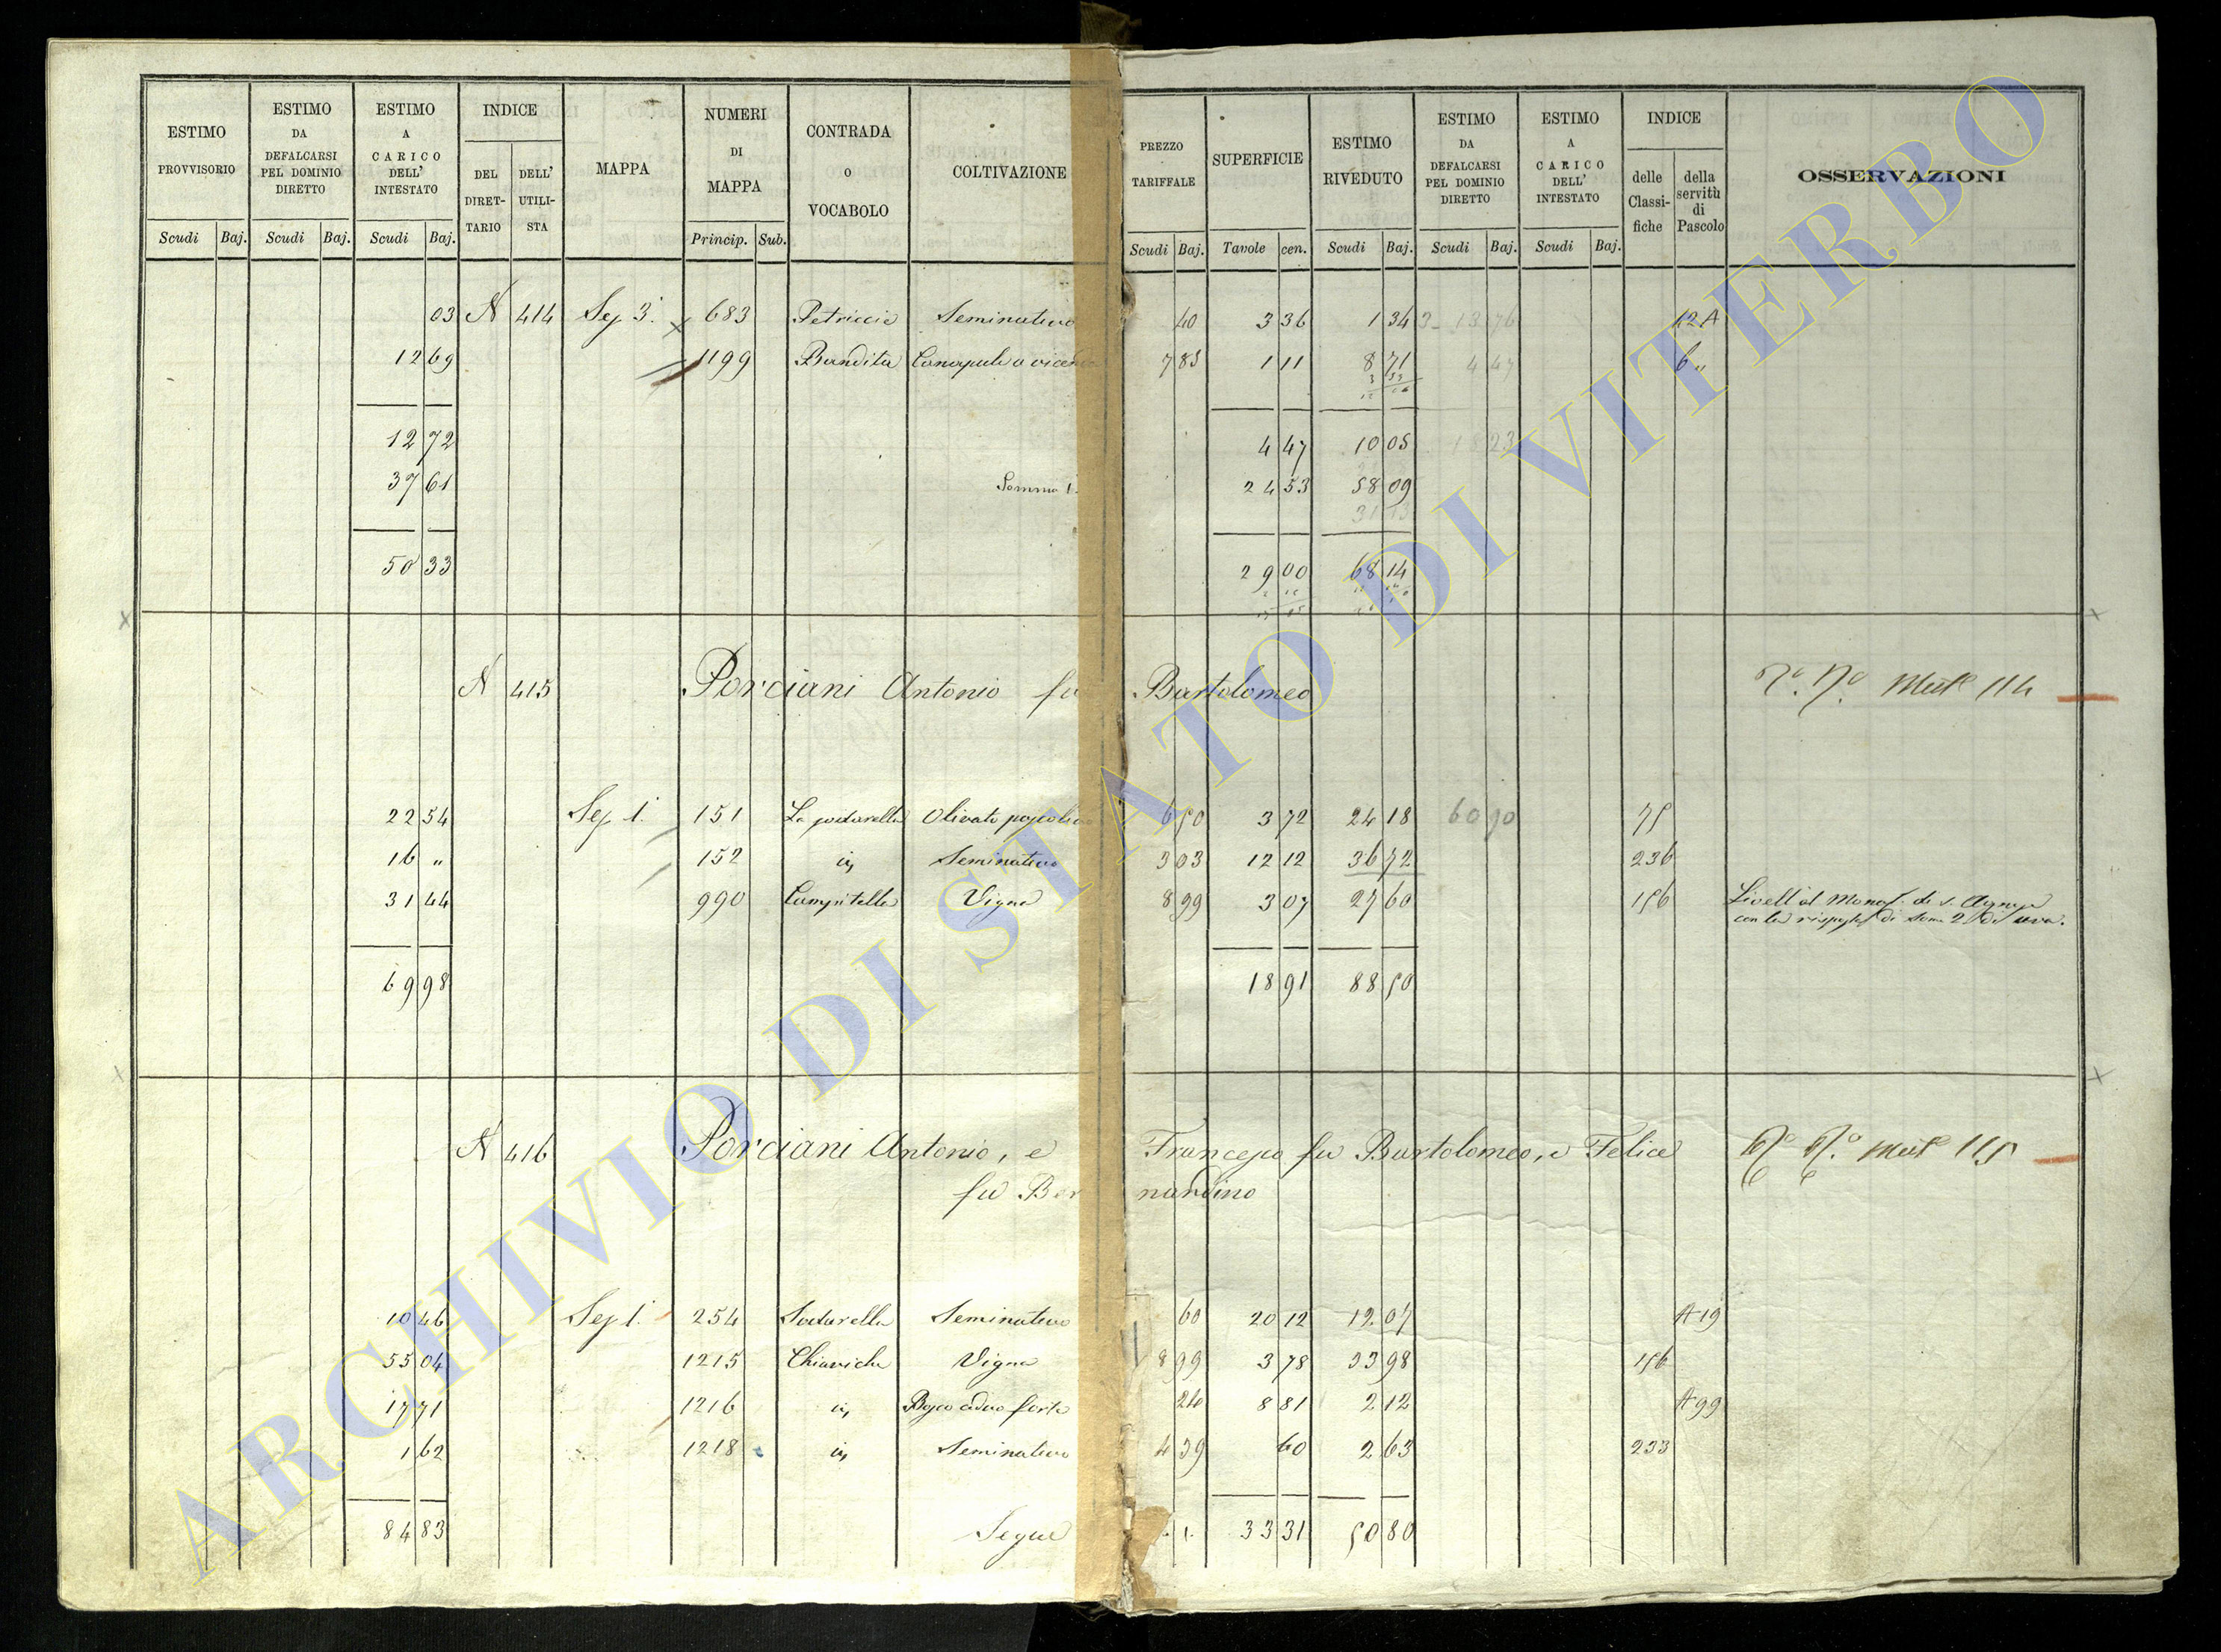 ESTIMO PROVVISORIO | ESTIMO DA DEFALCARSI PEL DOMINIO DIRETTO | ESTIMO A CARICO DELL' INTESTATO | INDICE DEL DIRET-TARIO | DELL' UTILI-STA | MAPPA | NUMERI DI MAPPA | CONTRADA O VOCABOLO | COLTIVAZIONE | PREZZO TARIFFALE | SUPERFICIE | ESTIMO RIVEDUTO | ESTIMO DA DEFALCARSI PEL DOMINIO DIRETTO | ESTIMO A CARICO DELL' INTESTATO | INDICE delle Classi-fiche | della servitù di Pascolo | OSSERVAZIONI
Scudi Baj. Scudi Baj. Scudi Baj. Princip. Sub. Scudi Baj. Tavole cen. Scudi Baj. Scudi Baj. Scudi Baj.
03 N 414 Sez 3. 683 Petriccie Seminativo 40 3 36 1 34 3 13 76 12 A
12 69 1199 Bandita 7 85 1 11 8 71 4 47 6 „
12 72 4 47 10 05 18 23
37 61 Somma 24 53 58 09
31 13
50 33 29 00 68 14
N 415 Porciani Antonio fu Bartolomeo 114
22 54 Sez 1. 151 Olivato pascolivo 6 50 3 72 24 18 60 90 75
16 „ 152 id Seminativo 3 03 12 12 36 72 236
31 44 990 Campitella Vigna 8 99 3 07 27 60 156 Livell. al Monas. di S. Agnese
con la risposta di some 2 di uva.
69 98 18 91 88 50
N 416 Porciani Antonio, e Francesco fu Bartolomeo, e Felice 115
fu Bernardino
10 46 Sez 1. 254 Sodarella Seminativo 60 20 12 12 07 A 19
55 04 1215 Chiaviche Vigna 8 99 3 78 33 98 156
17 71 1216 id Bosco ceduo forte 24 8 81 2 12 A 99
1 62 1218 id Seminativo 4 39 60 2 63 233
84 83 Segue 33 31 50 80
ARCHIVIO DI STATO DI VITERBO